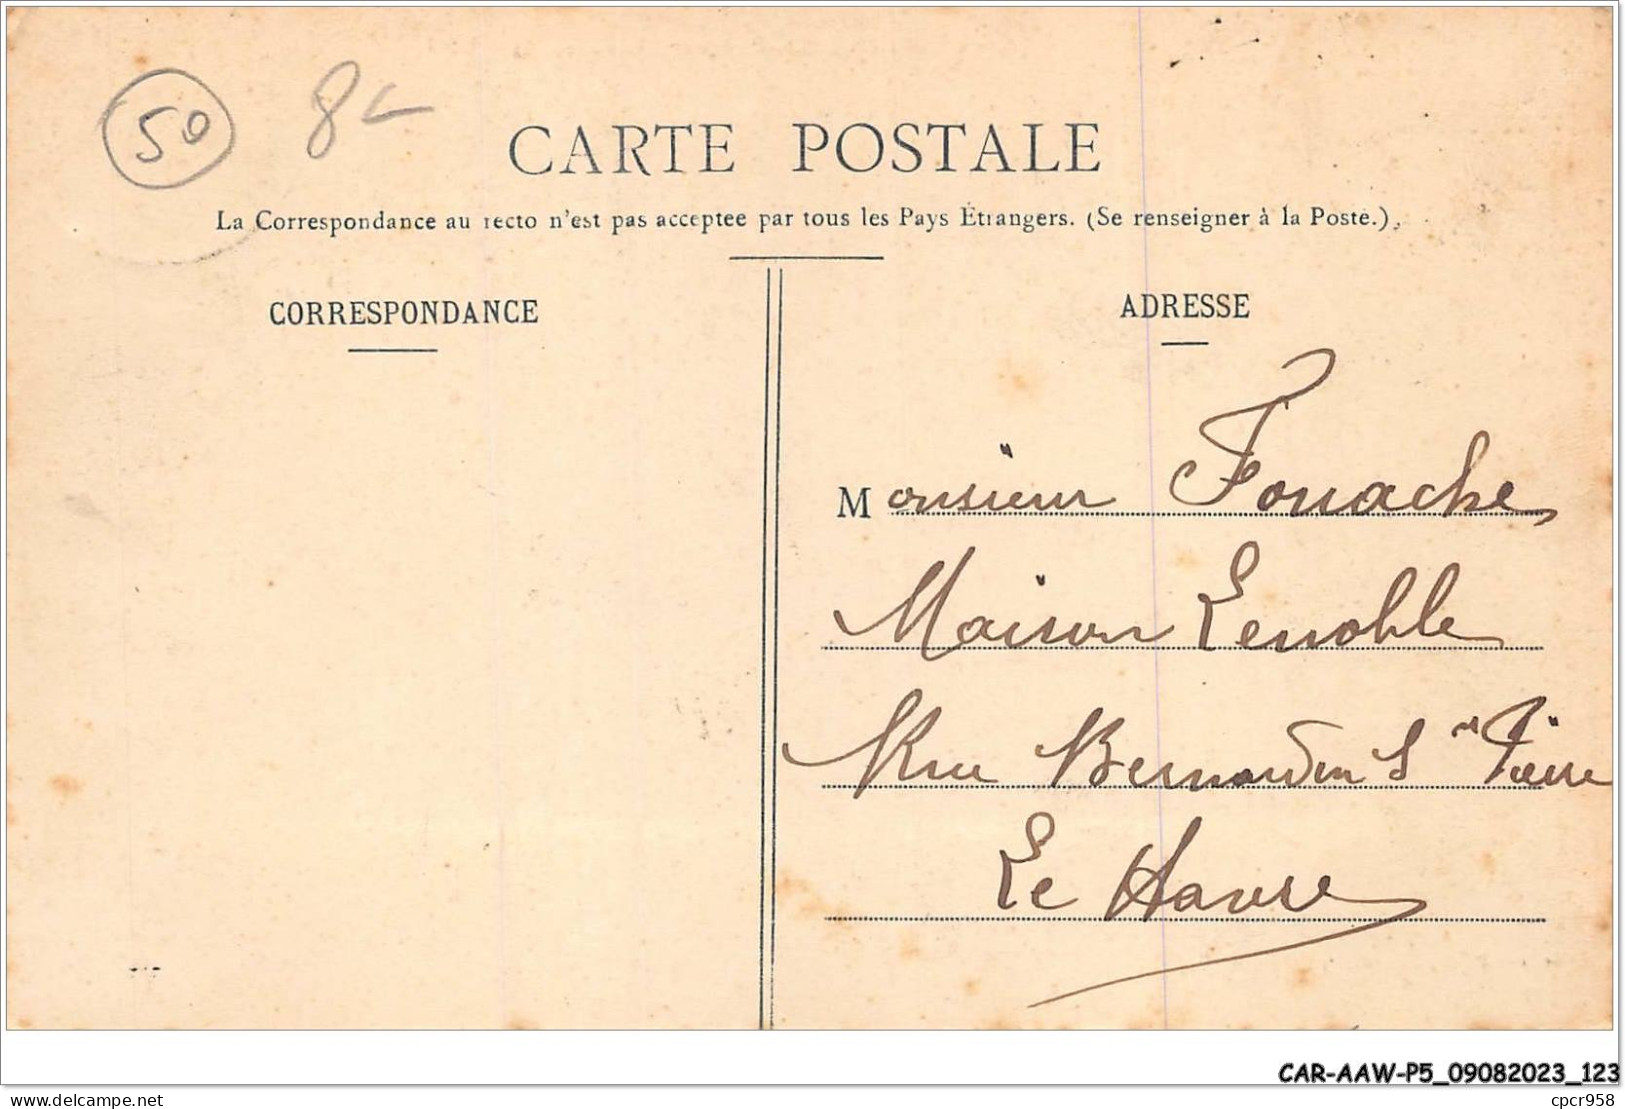 50 8-
CARTE POSTALE
La Correspondance au recto n'est pas acceptee par tous les Pays Étrangers. (Se renseigner à la Poste.)
CORRESPONDANCE
ADRESSE
Monsieur Fouache
Maison Lenoble
Rue Bernardin St Pierre
Le Havre
CAR-AAW-P5_09082023_123
cpcr958